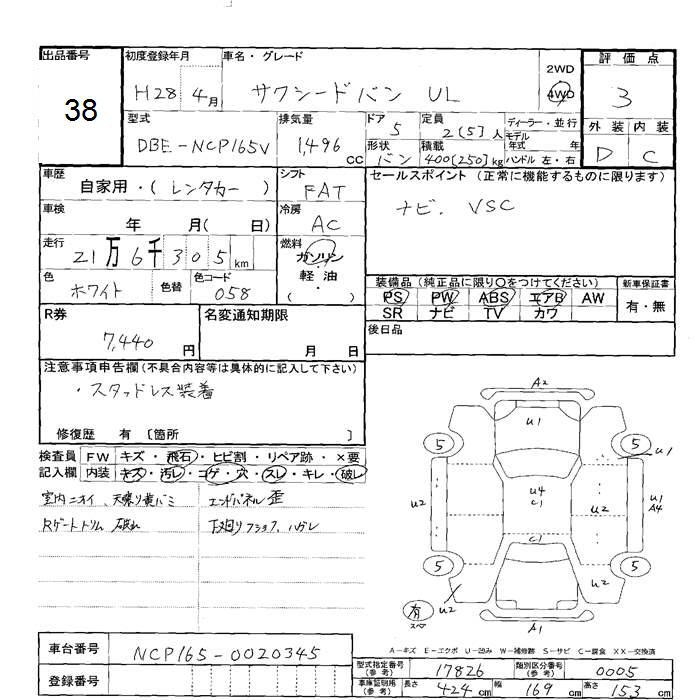 出品番号
38
初度登録年月
H28 4月
車名・グレード
サクシードバン UL
2WD
4WD
評価点
3
型式
DBE-NCP165V
排気量
1,496 cc
ドア
5
定員
2(5)人
ディーラー・並行
モデル
年式
形状
バン
積載
400(250)kg
ハンドル 左・右
外装 内装
D C
車歴
自家用・(レンタカー)
シフト
FAT
セールスポイント (正常に機能するものに限ります)
ナビ. VSC
車検
年 月( 日)
冷房
AC
走行
21万6千305km
燃料
ガソリン
軽・油
・( )
色
ホワイト
色替
色コード
058
装備品 (純正品に限り〇をつけてください)
PS PW ABS エアB AW
SR ナビ TV カワ
新車保証書
有・無
R券
7,440 円
名変通知期限
月 日
後日品
注意事項申告欄 (不具合内容等は具体的に記入して下さい)
・スタッドレス装着
修復歴 有 〔箇所 〕
検査員
記入欄
FW キズ・飛石・ヒビ割・リペア跡・×要
内装 キズ・汚レ・コゲ・穴・スレ・キレ・破レ
室内ニオイ、天張り黄バミ
Rゲートトリム 破れ
エンドパネル 歪
下廻りフック、ハゲレ
A2
U1
5
5
U1
U2
U4
C1
U2
U1
A4
C1
5
5
U2
U2
有
スペア
A1
A-キズ E-エクボ U-凹み W-補修跡 S-サビ C-腐食 XX-交換済
車台番号
NCP165-0020345
登録番号
型式指定番号
(参考)
17826
類別区分番号
(参考)
0005
車庫証明用
(参考)
長さ 424 cm 幅 169 cm 高さ 153 cm